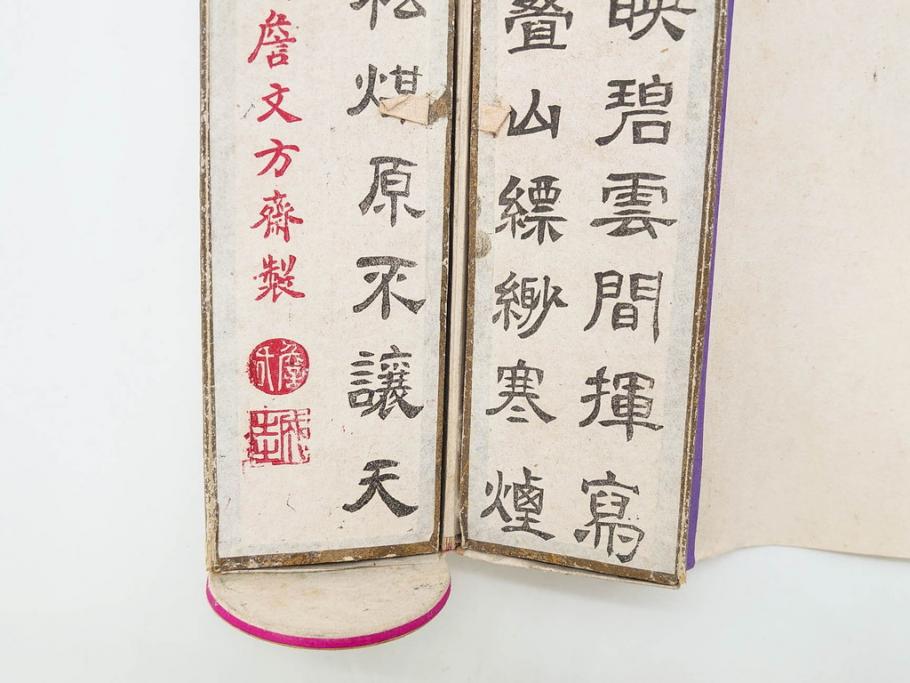 映碧雲間揮寫
疊山縹緲寒煙
松煤原不讓天
詹文方齋製